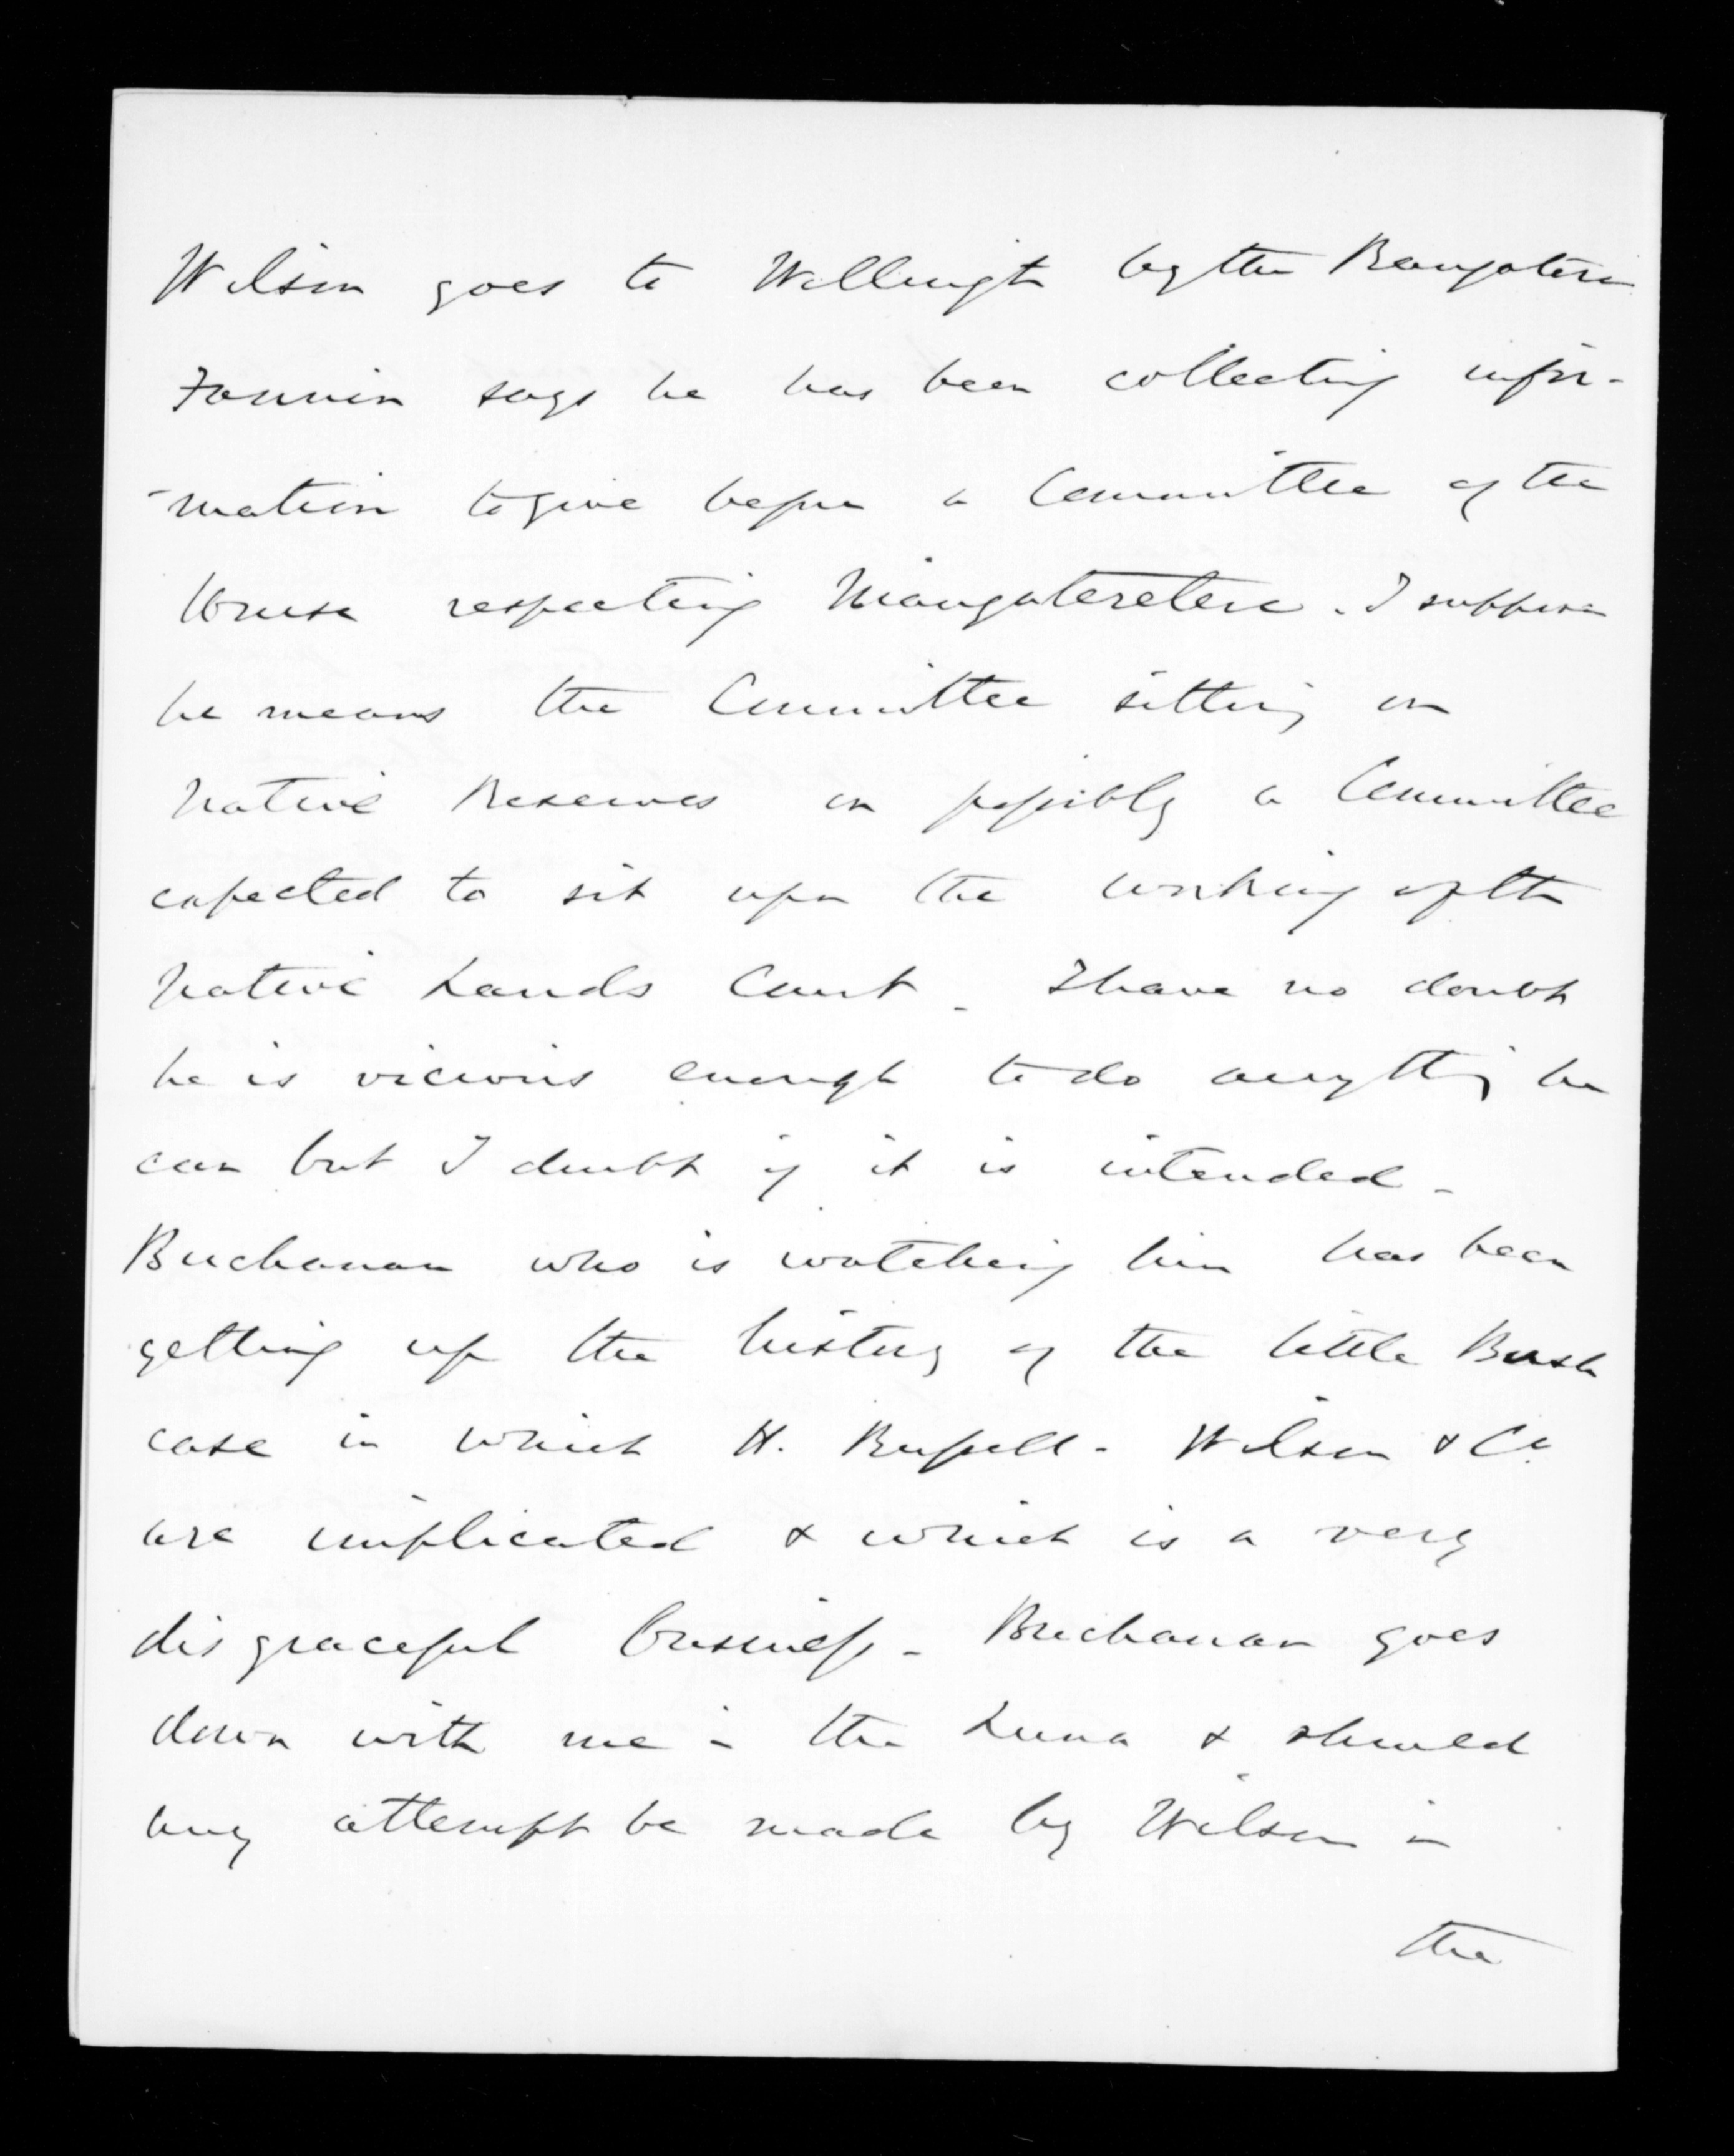 Wilson goes to Wellingtn by the Rangatira
Fannin says he has been collecting infor-
-mation to give before a Committee of the
House respecting Mangateretere. I suppose
he means the Committee sitting on
Native Reserves or possibly a Committee
expected to sit upon the working of the
Native Lands Court - I have no doubt
he is vicious enough to do anything he
can but I doubt if it is intended -
Buchanan who is watching him has been
getting up the history of the little Bush
case in which H. Russell - Wilson & Co.
are implicated & which is a very
disgraceful business - Buchanan goes
down with me in the Luna & should
any attempt be made by Wilson in
the